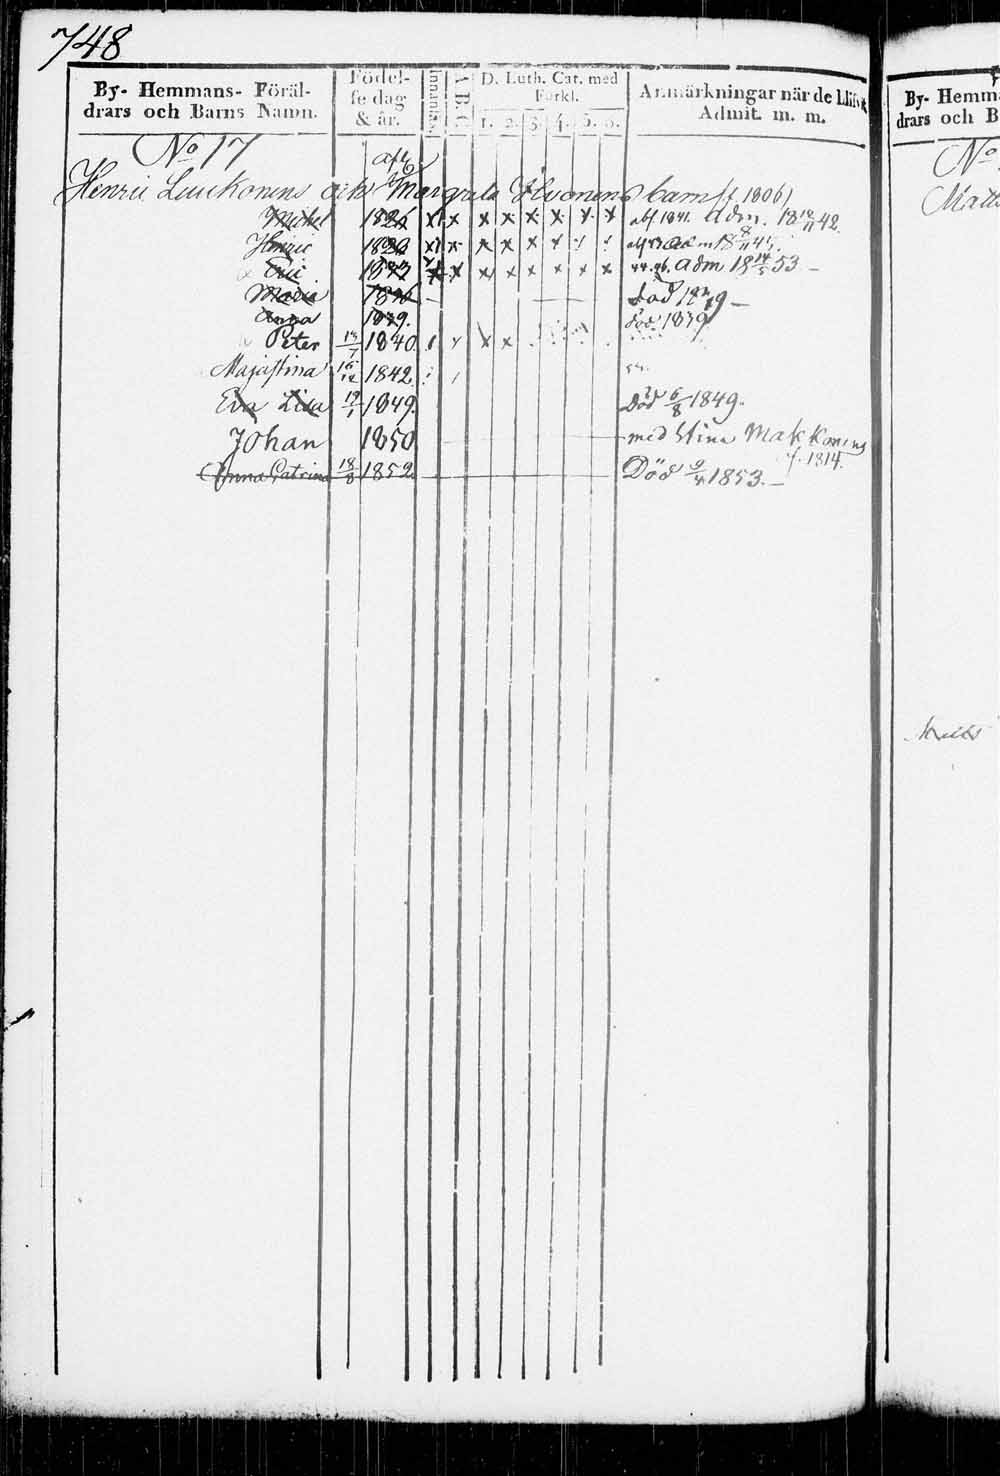 748
By- Hemmans- Föräl-
drars och Barns Namn.
Födel-
se dag
& år.
A.B.C.
D. Luth. Cat. med
Förkl.
1. 2. 3. 4. 5. 6.
Anmärkningar när de blifvit
Admit. m. m.
No 17
Henric Luukonens och Margreta Ihvonens barn (f. 1806)
Michel 1826 x x x x x x x x abs 1841. Adm. 18 42.
Henric x x x x x Adm 18 8/11 45.
Eric 1833 x x x x x x x Adm 18 14/5 53 -
Maria 1836 död
Anna 1839. död 1839
Peter 13/7 1840 x x
Majastina 16/12 1842
Eva Lisa 19/1 1849. Död 6/8 1849.
Johan 1850 med Stina Makkonens
f. 1814.
Anna Catrina 18/8 1852 Död 9/4 1853. -
By- Hemma
drars och B
No
Matts